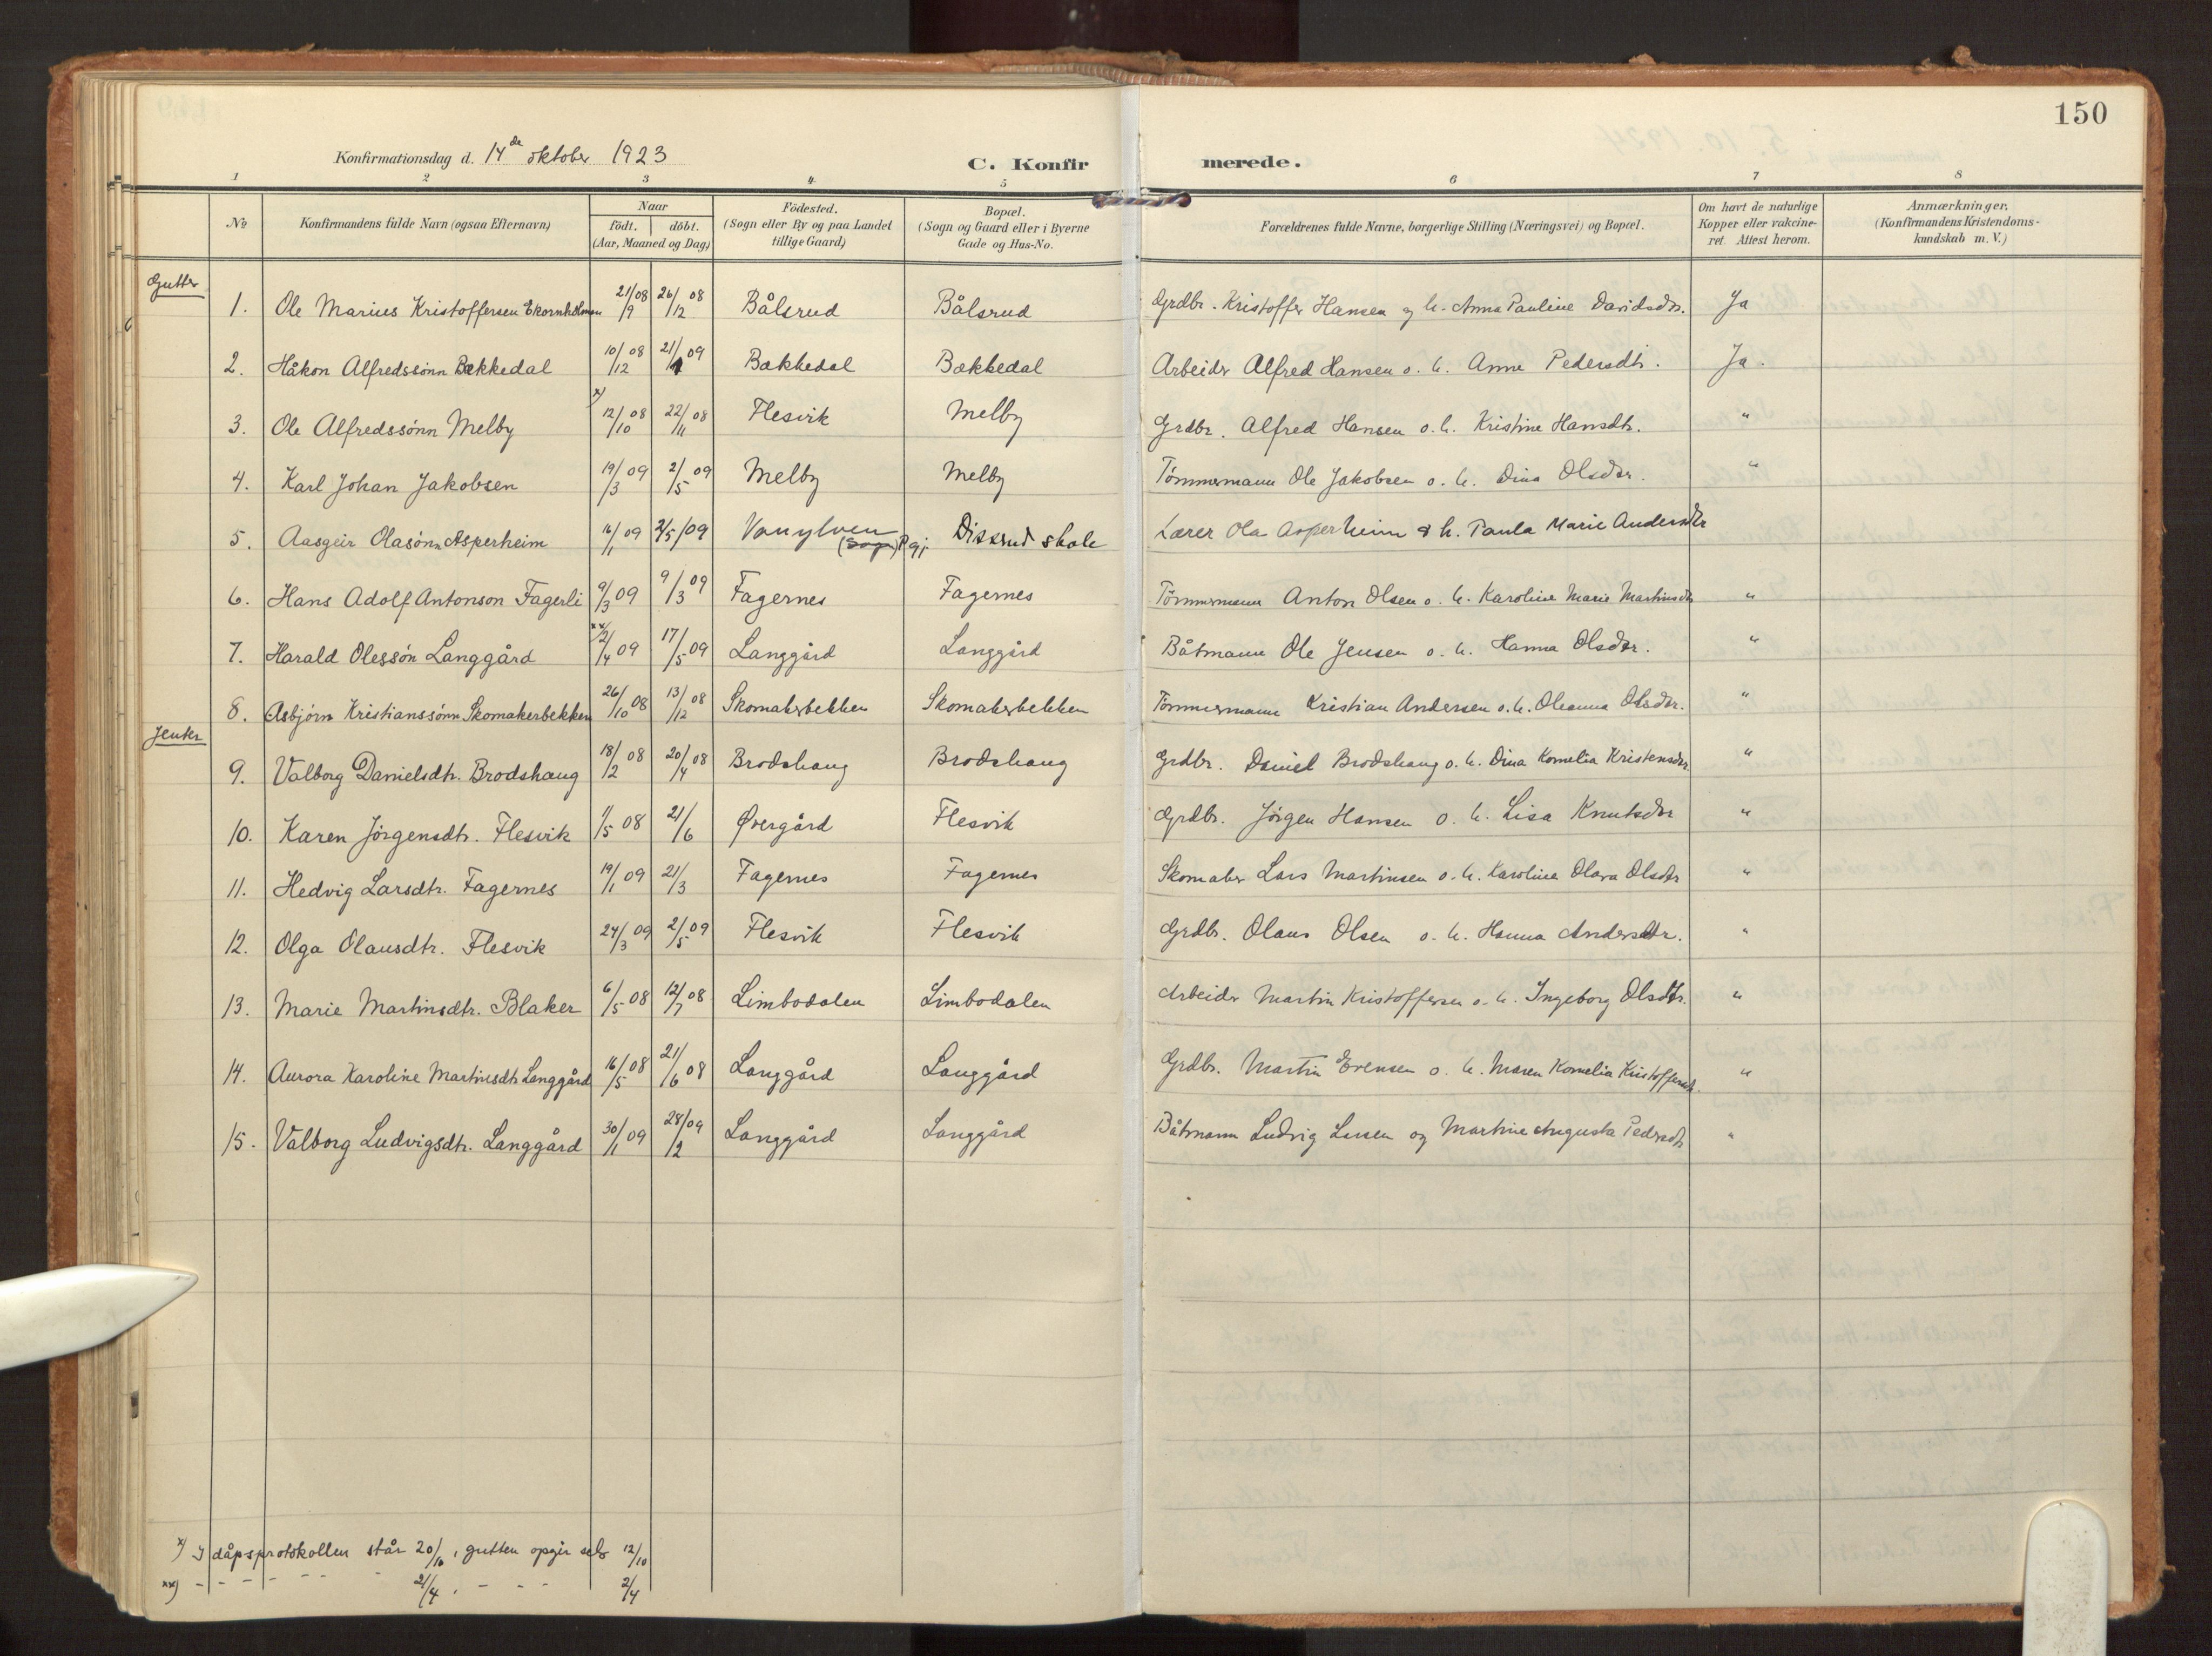 150
Konfirmationsdag d. 14de oktober 1923
C. Konfirmerede.
1 2 3 4 5 6 7 8
No
Konfirmandens fulde Navn (ogsaa Efternavn)
Naar født. døbt. (Aar, Maaned og Dag)
Fødested. (Sogn eller By og paa Landet tillige Gaard)
Bopæl. (Sogn og Gaard eller i Byerne Gade og Hus-No.
Forældrenes fulde Navne, borgerlige Stilling (Næringsvei) og Bopæl.
Om havt de naturlige Kopper eller vakcineret. Attest herom.
Anmærkninger, (Konfirmandens Kristendomskundskab m. V.)
Gutter
1. Ole Marius Kristoffersen Ekornholmen 21/9 08 26/12 08 Bålsrud Bålsrud Grdbr. Kristoffer Hansen og h. Anna Pauline Davidsdtr. Ja
2. Håkon Alfredssønn Bækkedal 10/12 08 21/1 09 Bækkedal Bækkedal Arbeider Alfred Hansen o. h. Anne Pedersdtr. Ja.
3. Ole Alfredssønn Melby x) 12/10 08 22/11 08 Flesvik Melby Grdbr. Alfred Hansen o. h. Kristine Hansdtr. "
4. Karl Johan Jakobsen 19/3 09 2/5 09 Melby Melby Tømmermann Ole Jakobsen o. h. Dina Olsdtr. "
5. Aasgeir Olasønn Asperheim 16/1 09 2/5/09 Vanylven (Sogn) Pgj. Dissrud skole Lærer Ola Asperheim & h. Paula Marie Andersdtr
6. Hans Adolf Antonson Fagerli 9/3 09 9/3 09 Fagernes Fagernes Tømmermann Anton Olsen o. h. Karoline Marie Martinsdtr "
7. Harald Olessøn Langgård xx) 2/4 09 17/5 09 Langgård Langgård Båtmann Ole Jensen o. h. Hanna Olsdtr. "
8. Asbjørn Kristianssønn Skomakerbekken 26/10 08 13/12 08 Skomakerbekken Skomakerbekken Tømmermann Kristian Andersen o. h. Oleanna Olsdtr. "
Jenter
9. Valborg Danielsdtr. Brodshaug 18/2 08 20/4 08 Brodshaug Brodshaug Grdbr. Daniel Brodshaug o. h. Dina Kornelia Kristensdtr "
10. Karen Jörgensdtr. Flesvik 1/5 08 21/6 Øvergård Flesvik Grdbr. Jörgen Hansen o. h. Lisa Knutsdtr "
11. Hedvig Larsdtr. Fagernes 19/1 09 21/3 Fagernes Fagernes Skomaker Lars Martinsen o. h. Karoline Olava Olsdtr "
12. Olga Olausdtr. Flesvik 24/3 09 2/5 09 Flesvik Flesvik Grdbr. Olaus Olsen o. h. Hanna Andersdtr. "
13. Marie Martinsdtr. Blaker 6/5 08 12/7 08 Limbodalen Limbodalen Arbeider Martin Kristoffersen o. h. Ingeborg Olsdtr. "
14. Aurora Karoline Martinsdtr Langgård 16/5 08 21/6 08 Langgård Langgård Grdbr. Martin Evensen o. h. Maren Kornelia Kristoffersdtr. "
15. Valborg Ludvigsdtr. Langgård 30/1 09 28/2 09 Langgård Langgård Båtmann Ludvig og Martine Augusta Pedersdtr "
x) I dåpsprotokollen står 20/10, gutten opgir selv 12/10
xx) - - - - - - - 21/4, - - - 2/4